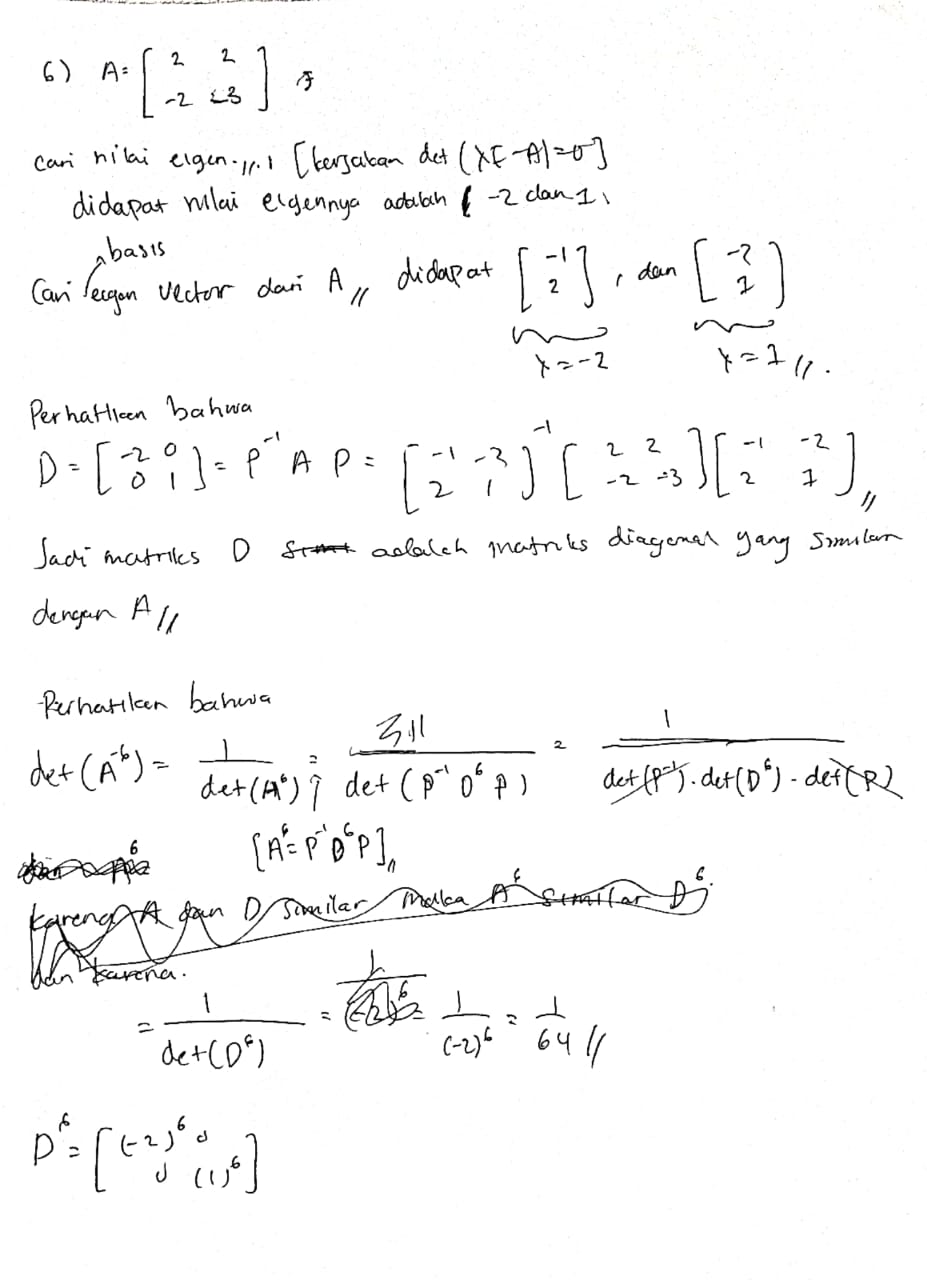 6) A = [ 2 2 ; -2 -3 ]
Cari nilai eigen. // [kerjakan det (λI - A) = 0]
didapat nilai eigennya adalah -2 dan 1,
basis
Cari eigen vector dari A // didapat [ -1 ; 2 ], dan [ -2 ; 1 ]
λ = -2 λ = 1 //.
Perhatikan bahwa
D = [ -2 0 ; 0 1 ] = P^-1 A P = [ -1 -2 ; 2 1 ]^-1 [ 2 2 ; -2 -3 ] [ -1 -2 ; 2 1 ] //
Jadi matriks D adalah matriks diagonal yang similar
dengan A //
Perhatikan bahwa
det(A^-6) = 1 / det(A^6) = 1 / det(P^-1 D^6 P) = 1 / det(P^-1) . det(D^6) . det(P)
[A^6 = P^-1 D^6 P] //
karena A dan D similar maka A^6 similar D^6.
dan karena.
= 1 / det(D^6) = 1 / (-2)^6 = 1 / 64 //
D^6 = [ (-2)^6 0 ; 0 (1)^6 ]